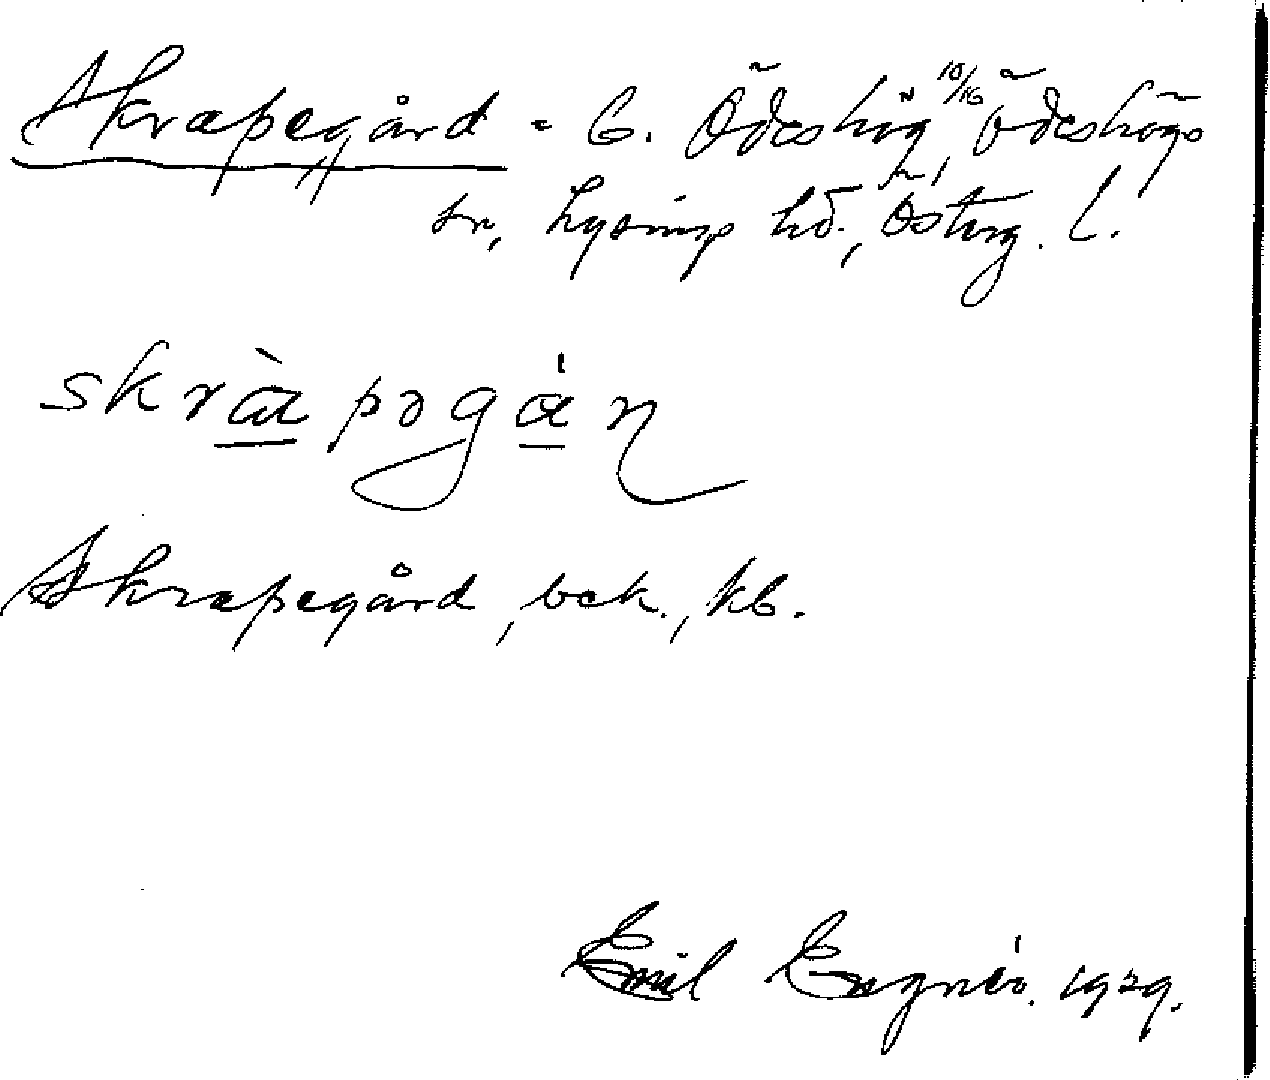 Skrapegård - G. Ödeshög 10/16 Ödeshögs
sn, Lysings hd., Österg. l.
skràpəgán
Skrapegård, bek., kb.
Emil Engnér. 1929.